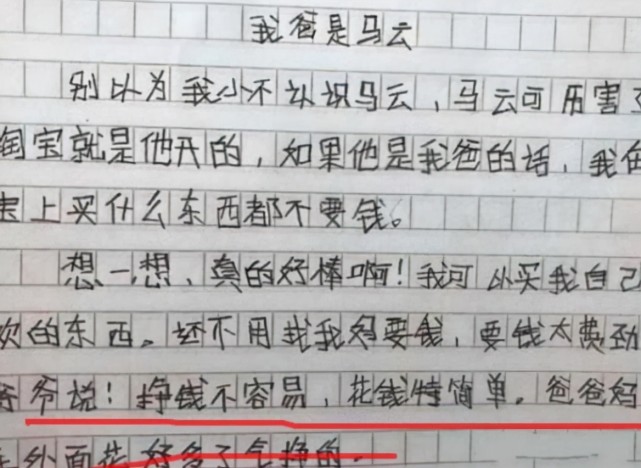 我爸是马云
别以为我小不认识马云，马云可历害了
淘宝就是他开的，如果他是我爸的话，我在
宝上买什么东西都不要钱。
想一想，真的好棒啊！我可以买我自己
欢的东西。还不用找我妈要钱，要钱太费劲
爷爷说！挣钱不容易，花钱特简单。爸爸妈
在外面花好多力气挣的。